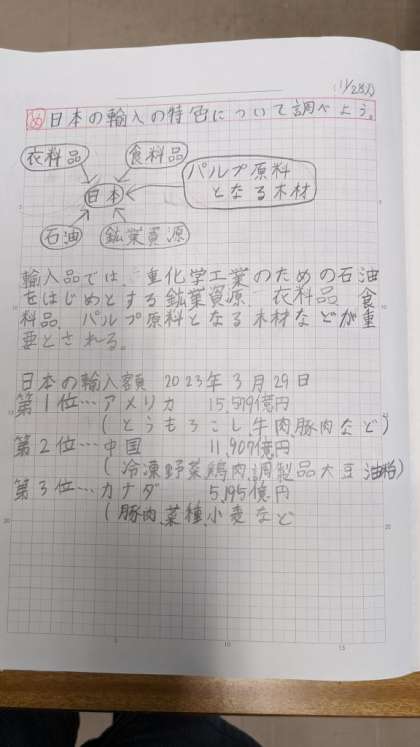 (11/28月)
め 日本の輸入の特色について調べよう。
衣料品
食料品
パルプ原料
となる木材
日本
石油
鉱業資源
輸入品では、重化学工業のための石油
をはじめとする鉱業資源、衣料品、食
料品、パルプ原料となる木材などが重
要とされる。
日本の輸入額 2023年3月29日
第1位…アメリカ 15,579億円
(とうもろこし、牛肉、豚肉など)
第2位…中国 11,907億円
(冷凍野菜、鶏肉、調製品、大豆油粕)
第3位…カナダ 5,195億円
(豚肉、菜種、小麦など
5
10
15
20